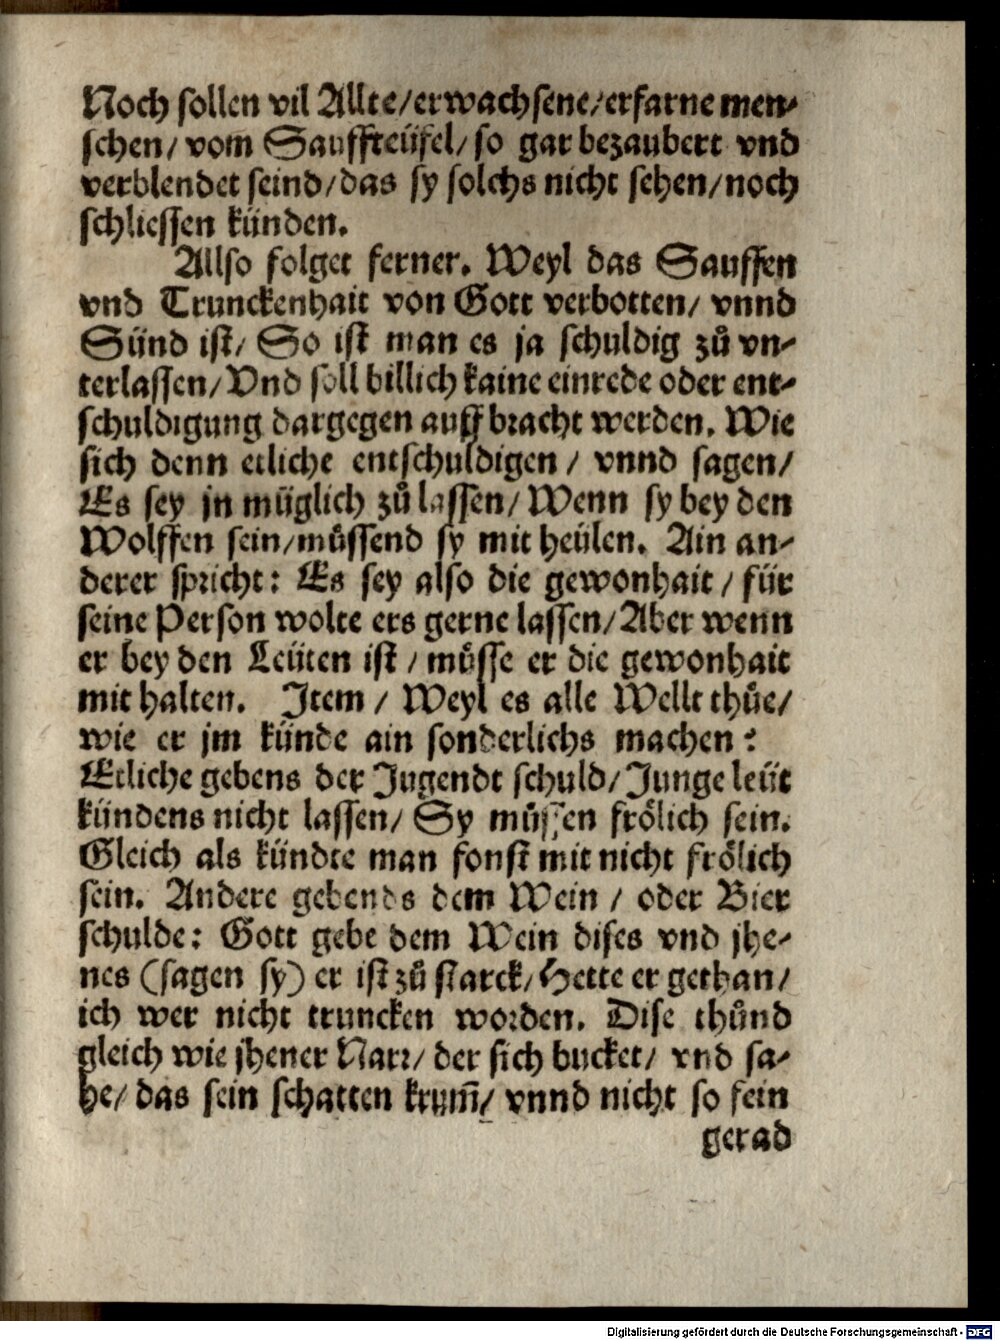 Noch sollen vil Allte/erwachsene/erfarne men⸗
schen/ vom Sauffteüfel/ so gar bezaubert vnd
verblendet seind/das sy solchs nicht sehen/noch
schliessen künden.
Allso folget ferner. Weyl das Sauffen
vnd Trunckenhait von Gott verbotten/ vnnd
Sünd ist/ So ist man es ja schuldig zů vn⸗
terlassen/ Vnd soll billich kaine einrede oder ent⸗
schuldigung dargegen auff bracht werden. Wie
sich denn etliche entschuldigen / vnnd sagen/
Es sey jn müglich zů lassen/ Wenn sy bey den
Wolffen sein/můssend sy mit heülen. Ain an⸗
derer spricht: Es sey also die gewonhait / für
seine Person wolte ers gerne lassen/ Aber wenn
er bey den Leüten ist / můsse er die gewonhait
mit halten. Item / Weyl es alle Wellt thůe/
wie er jm künde ain sonderlichs machen?
Etliche gebens der Jugendt schuld/ Junge leüt
kündens nicht lassen/ Sy můssen frölich sein.
Gleich als kündte man sonst mit nicht frölich
sein. Andere gebends dem Wein / oder Bier
schulde: Gott gebe dem Wein dises vnd jhe⸗
nes (sagen sy) er ist zů starck/ Hette er gethan/
ich wer nicht truncken worden. Dise thůnd
gleich wie jhener Narr/ der sich bucket/ vnd sa⸗
he/ das sein schatten krum̃/ vnnd nicht so fein
gerad
Digitalisierung gefördert durch die Deutsche Forschungsgemeinschaft - DFG